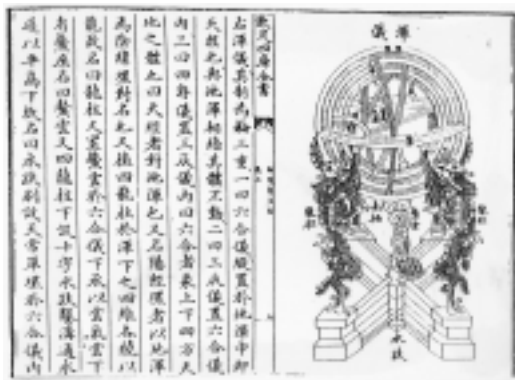 渾儀
龍柱
鰲雲
龍柱
水趺
欽定四庫全書
右渾儀其制為輪三重一曰六合儀縱置於地渾中即
天經也與地渾相結其體不動二曰三辰儀置六合儀
內三曰四游儀置三辰儀內曰六合者象上下四方天
地之體也曰天經者對地渾也又名陽經環者以地渾
為陰緯環對名也又植四龍柱於渾下之四維各繞以
龍故名曰龍柱又置鰲雲於六合儀下承以雲氣雲下
有鰲座名曰鰲雲又四龍柱下設十字水趺鑿溝通水
道以平高下故名曰水趺別設天常單環於六合儀內